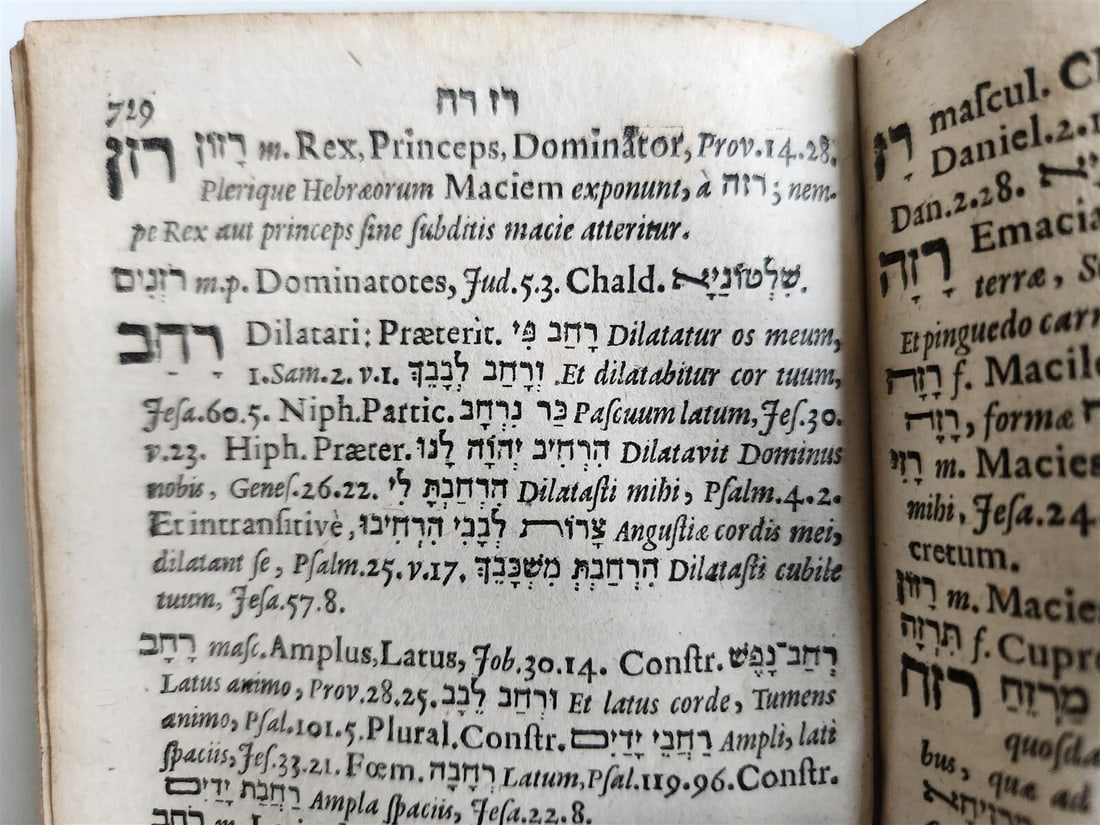 729
רז רח
רזן רָזוֹן m. Rex, Princeps, Dominator, Prov.14.28.
Plerique Hebræorum Maciem exponunt, à רזה; nem-
pe Rex aut princeps ſine ſubditis macie atteritur.
רֹזְנִים m.p. Dominatotes, Jud.5.3. Chald. שִׁלְטוֹנַיָּא.
רָחַב Dilatari: Præterit. רָחַב פִּי Dilatatur os meum,
1.Sam.2. v.1. וְרָחַב לְבָבֵךְ. Et dilatabitur cor tuum,
Jeſa.60.5. Niph.Partic. כַּר נִרְחָב Paſcuum latum, Jeſ.30.
v.23. Hiph. Præter. הִרְחִיב יְהֹוָה לָנוּ Dilatavit Dominus
nobis, Geneſ.26.22. הִרְחַבְתָּ לִּי Dilataſti mihi, Pſalm.4.2.
Et intranſitivè, צָרוֹת לְבָבִי הִרְחִיבוּ Anguſtiæ cordis mei,
dilatant ſe, Pſalm.25.v.17. הִרְחַבְתְּ מִשְׁכָּבֵךְ Dilataſti cubile
tuum, Jeſa.57.8.
רָחָב maſc. Amplus, Latus, Job.30.14. Conſtr. רְחַב־נֶפֶשׁ
Latus animo, Prov.28.25. וּרְחַב לֵבָב Et latus corde, Tumens
animo, Pſal.101.5. Plural.Conſtr. רַחֲבֵי יָדַיִם Ampli, lati
ſpaciis, Jeſ.33.21. Fœm. רְחָבָה Latum, Pſal.119.96. Conſtr.
רַחֲבַת יָדַיִם Ampla ſpaciis, Jeſa.22.8.
רָז maſcul.
Daniel.2.
Dan.2.28.
רָזָה Emacia
terræ,
Et pinguedo carn
רָזָה f. Macil
רָזָה, formæ
רָזִי m. Macies
mihi, Jeſa.24
cretum.
רָזוֹן m. Macie
תִּרְזָה f. Cupre
רזח מַרְזֵחַ
quoſda
bus, quæ ad